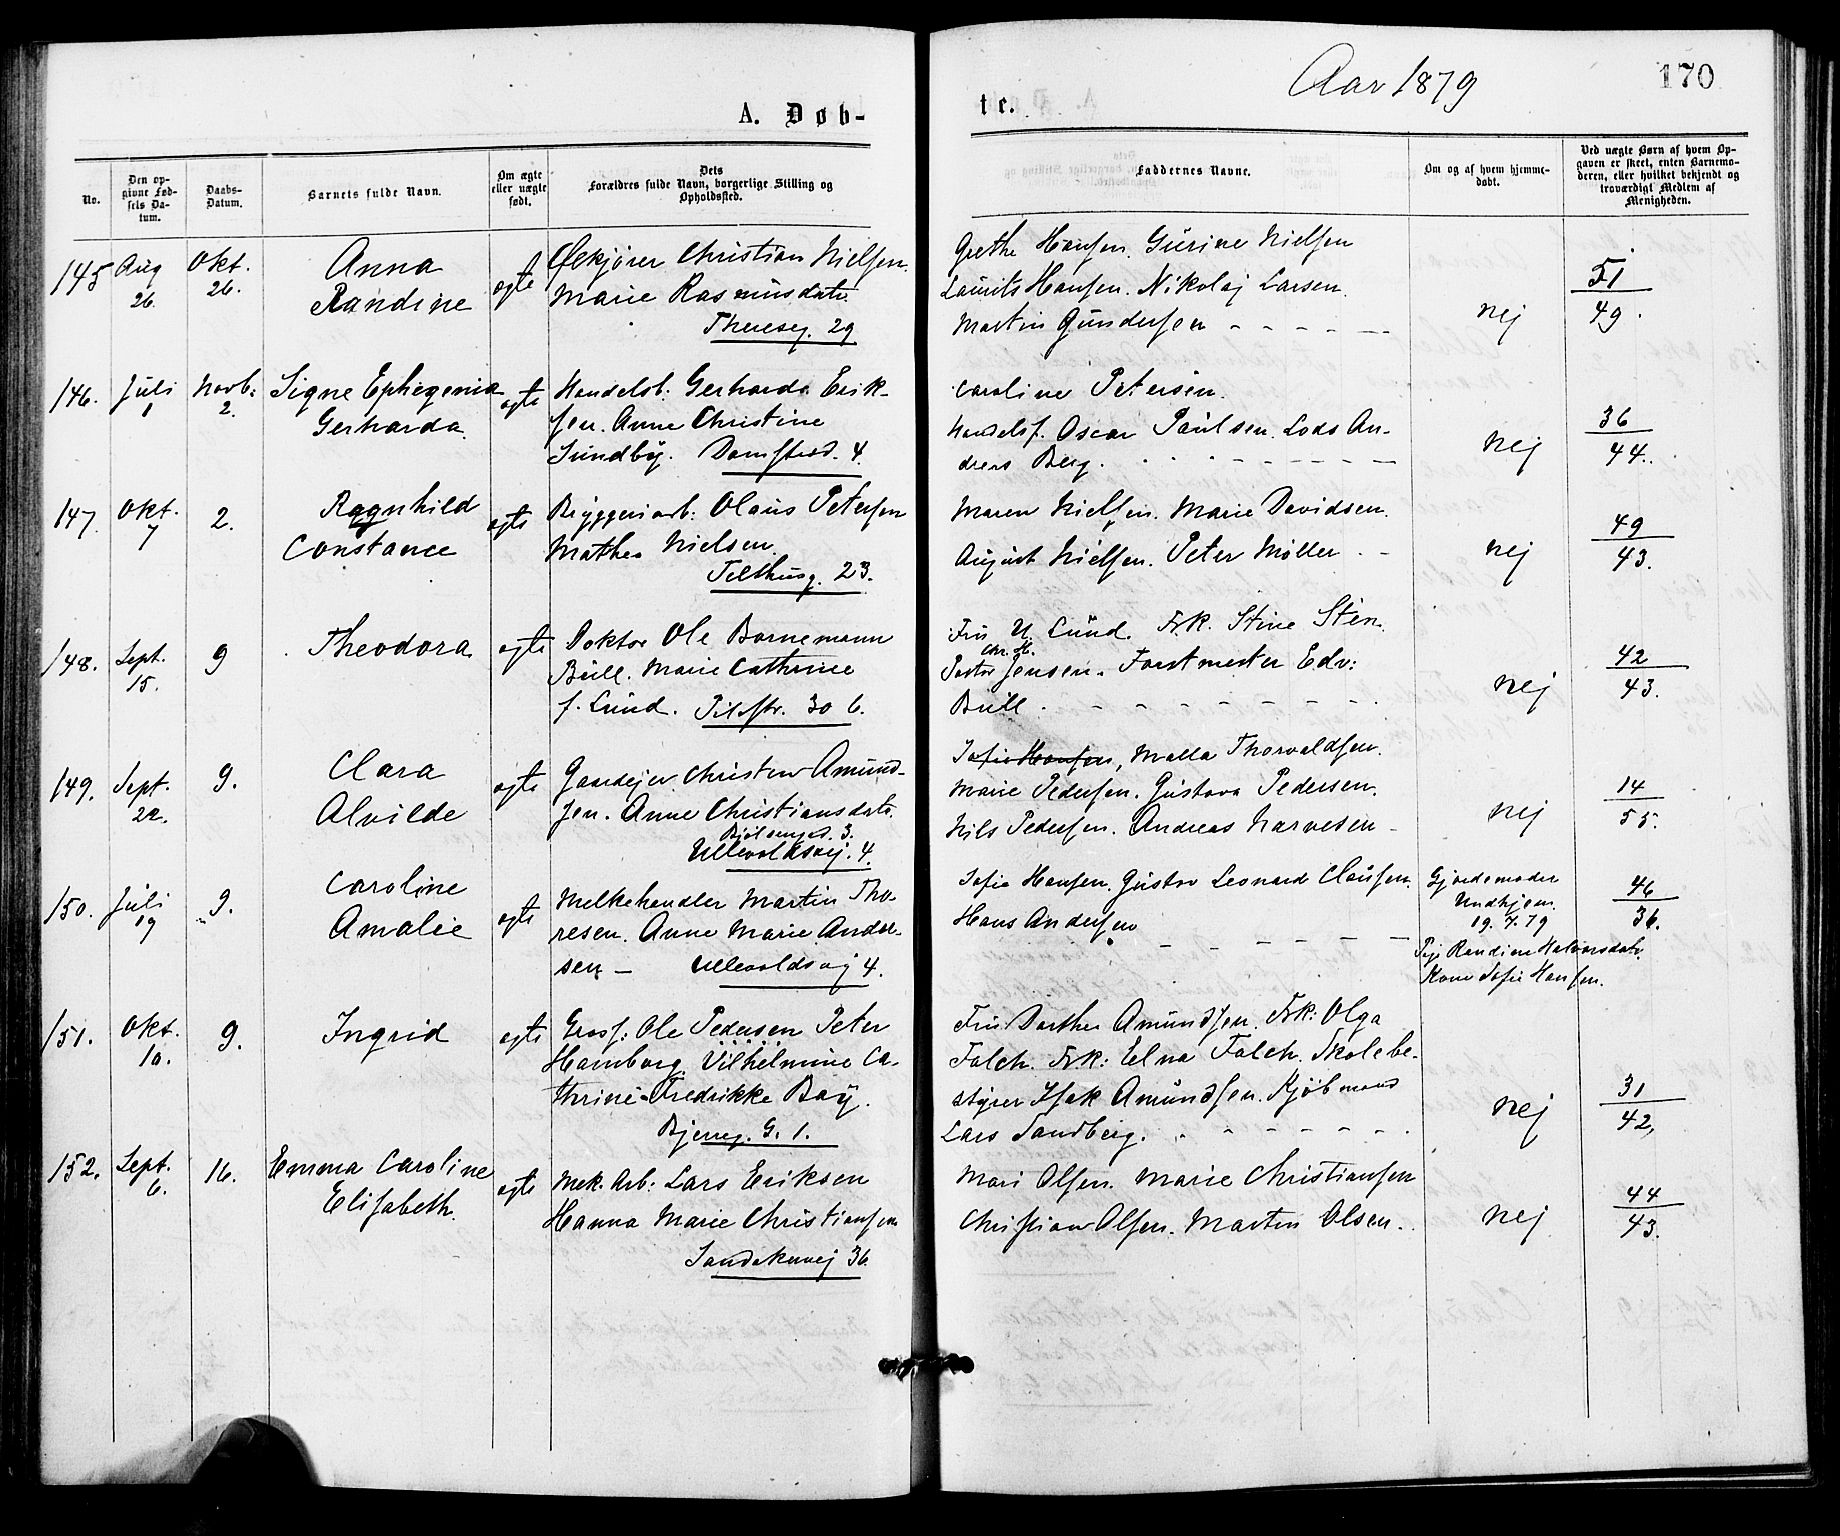 Aar 1879
170
A. Døb-
te.
No.
Den op-
givne Fød-
sels Da-
tum.
Daabs-
Datum.
Barnets fulde Navn.
Om ægte
eller uægte
født.
Dets
Forældres fulde Navn, borgerlige Stilling og
Opholdssted.
Faddernes Navne.
Om og af hvem hjemme-
døbt.
Ved uægte Børn af hvem Op-
gaven er skeet, enten Barnemo-
deren, eller hvilket bekjendt og
troværdigt Medlem af
Menigheden.
145 Aug 26. Okt. 26.
Anna
Randine
ægte
Ølkjører Christian Nielsen.
Marie Rasmusdatr.
Thereseg. 29
Grethe Hansen. Gurine Nielsen
Laurits Hansen. Nikolaj Larsen.
Martin Gundersen - - - - -
nej
51
49.
146. Juli 1 Novb: 2.
Signe Ephegenia
Gerharda
ægte
Handelsb: Gerhardo Erik-
sen. Anne Christine
Sundby. Damstrad. 4.
Caroline Petersen.
Handelsf. Oscar Paulsen. Lods An-
dreas Berg.
nej
36
44.
147. Okt. 7 2.
Ragnhild
Constance
ægte
Bryggeriarb: Olaus Petersen
Mathea Nielsen
Telthusg. 23.
Maren Nielsen. Marie Davidsen.
August Nielsen. Peter Møller - -
nej
49
43.
148. Sept. 15. 9
Theodora
ægte
Doktor Ole Bornemann
Bull. Marie Cathrine
f. Lund. Pilestr. 30 b.
Fru U. Lund. Frk. Stine Sten.
Chr. H.
Pastor Jensen. Forstmester Edv:
Bull. - - - - - - - -
nej
42
43.
149. Sept. 22. 9.
Clara
Alvilde
ægte
Gaardejer Christen Amund-
sen. Anne Christiansdatr.
Bjølsengd. 3.
Ullevoldsvej. 4.
Sofie Hansen, Malla Thorvaldsen.
Marie Pedersen. Gustava Pedersen.
Nils Pedersen. Andreas Narvesen -
nej
14
55.
150. Juli 19 9.
Caroline
Amalie
ægte
Melkehandler Martin Tho-
resen. Anne Marie Andre-
sen - Ullevoldsvej 4.
Sofie Hansen. Gustav Leonard Clausen.
Hans Andersen - - - - - -
Gjordemoder
Undhjem.
19.7.79
Pige Randine Halvorsdatr.
Kone Sofie Hansen.
46
36.
151. Okt. 10. 9.
Ingrid
ægte
Grosf: Ole Pedersen Peter
Homborg. Vilhelmine Ca-
thrine Fredrikke Bay.
Bjerreg. G. 1.
Fru Dorthea Amundsen. Frk: Olga
Falch. Frk: Elna Falch. Skolebe-
styrer Isak Amundsen. Kjøbmand
Lars Sandberg. - - - - - -
nej
31
42,
152. Sept. 6. 16.
Emma Caroline
Elisabeth.
ægte
Mek. Arb: Lars Eriksen
Hanna Marie Christiansen
Sandakervej 36.
Mari Olsen. Marie Christiansen
Christian Olsen. Martin Olsen.
nej
44
43.